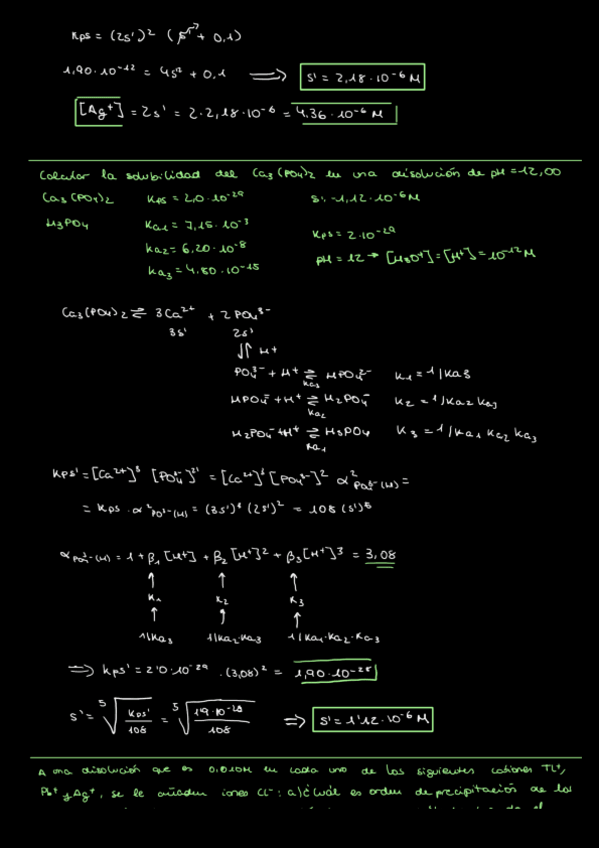 Kps = (2s')² (s' + 0,1)
1,90·10⁻¹² = 4s² + 0,1 ⟹ s' = 2,18·10⁻⁶ M
[Ag⁺] = 2s' = 2·2,18·10⁻⁶ = 4,36·10⁻⁶ M
Calcular la solubilidad del Ca₃(PO₄)₂ en una disolución de pH = 12,00
Ca₃(PO₄)₂ Kps = 2,0·10⁻²⁹ s' = 1,12·10⁻⁶ M
H₃PO₄ Ka₁ = 7,15·10⁻³
Kps = 2·10⁻²⁹
Ka₂ = 6,20·10⁻⁸
pH = 12 → [H₃O⁺] = [H⁺] = 10⁻¹² M
Ka₃ = 4,80·10⁻¹³
Ca₃(PO₄)₂ ⇌ 3Ca²⁺ + 2PO₄³⁻
3s' 2s'
⇵ H⁺
PO₄³⁻ + H⁺ ⇌ HPO₄²⁻ K₁ = 1/Ka₃
Ka₃
HPO₄⁻ + H⁺ ⇌ H₂PO₄⁻ K₂ = 1/Ka₂Ka₃
Ka₂
H₂PO₄⁻ + H⁺ ⇌ H₃PO₄ K₃ = 1/Ka₁Ka₂Ka₃
Ka₁
Kps' = [Ca²⁺]³ [PO₄³⁻']² = [Ca²⁺]³ [PO₄³⁻]² α²PO₄³⁻(H) =
= Kps · α²PO³⁻(H) = (3s')³ (2s')² = 108 (s')⁵
αPO₄³⁻(H) = 1 + β₁[H⁺] + β₂[H⁺]² + β₃[H⁺]³ = 3,08
↑ ↑ ↑
K₁ K₂ K₃
↑ ↑ ↑
1/Ka₃ 1/Ka₂·Ka₃ 1/Ka₁·Ka₂·Ka₃
⟹ Kps' = 2'0·10⁻²⁹ · (3,08)² = 1,90·10⁻²⁸
s' = ⁵√(Kps'/108) = ⁵√(1'9·10⁻²⁸/108) ⟹ s' = 1'12·10⁻⁶ M
A una disolución que es 0.010M en cada uno de los siguientes cationes TL⁺,
Pb⁺ y Ag⁺, se le añaden iones CL⁻: a) ¿Cuál es orden de precipitación de los